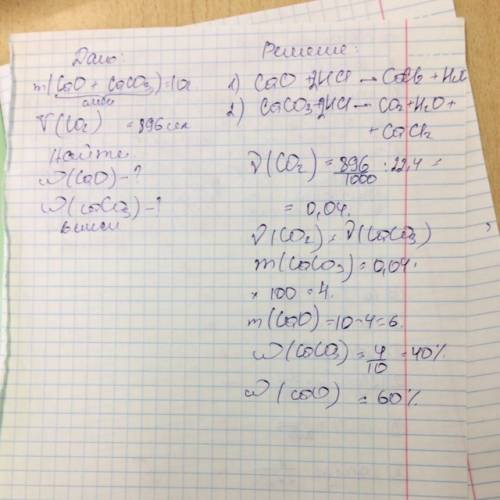 Дано:
m(CaO + CaCO3) = 10г
смеси
V(CO2) = 896мл
Найти
ω(CaO) - ?
ω(CaCO3) - ?
в смеси
Решение:
1) CaO + 2HCl → CaCl2 + H2O
2) CaCO3 + 2HCl → CO2 + H2O +
+ CaCl2
ν(CO2) = 896/1000 : 22,4 =
= 0,04.
ν(CO2) = ν(CaCO3)
m(CaCO3) = 0,04 ·
× 100 = 4.
m(CaO) = 10 - 4 = 6.
ω(CaCO3) = 4/10 = 40%
ω(CaO) = 60%